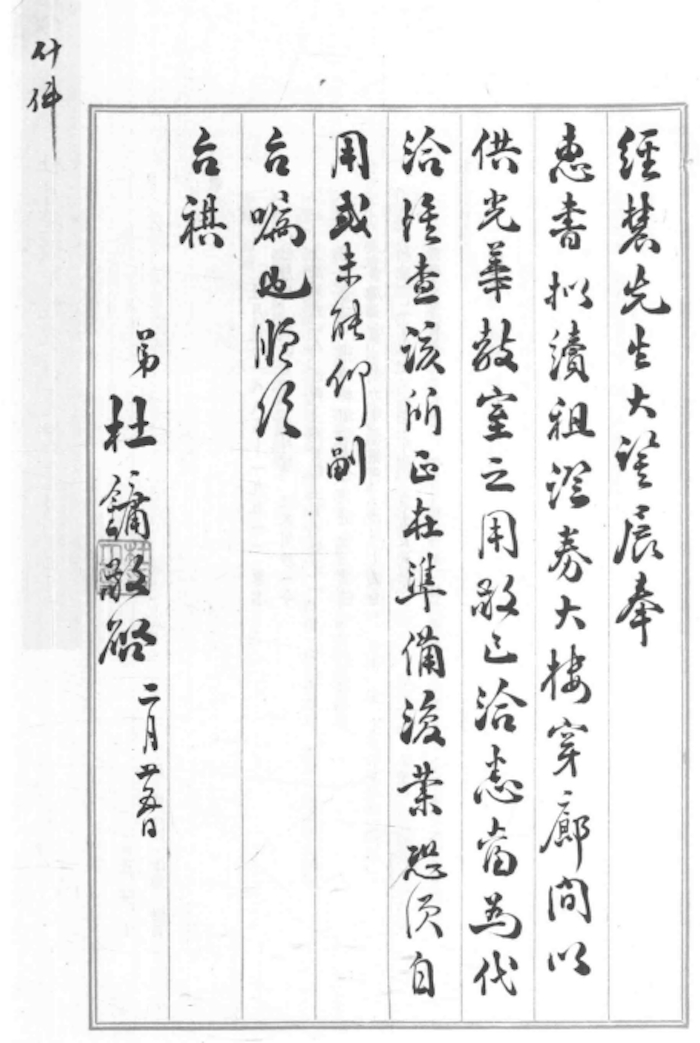 經農先生大鑒展奉
惠書拟續租證券大樓穿廊間以
供光華教室之用敬已洽悉當為代
洽惟查該所正在準備復業恐須自
用或未能仰副
台囑也順頌
台祺
弟杜鏞敬啓
二月廿五日
什件